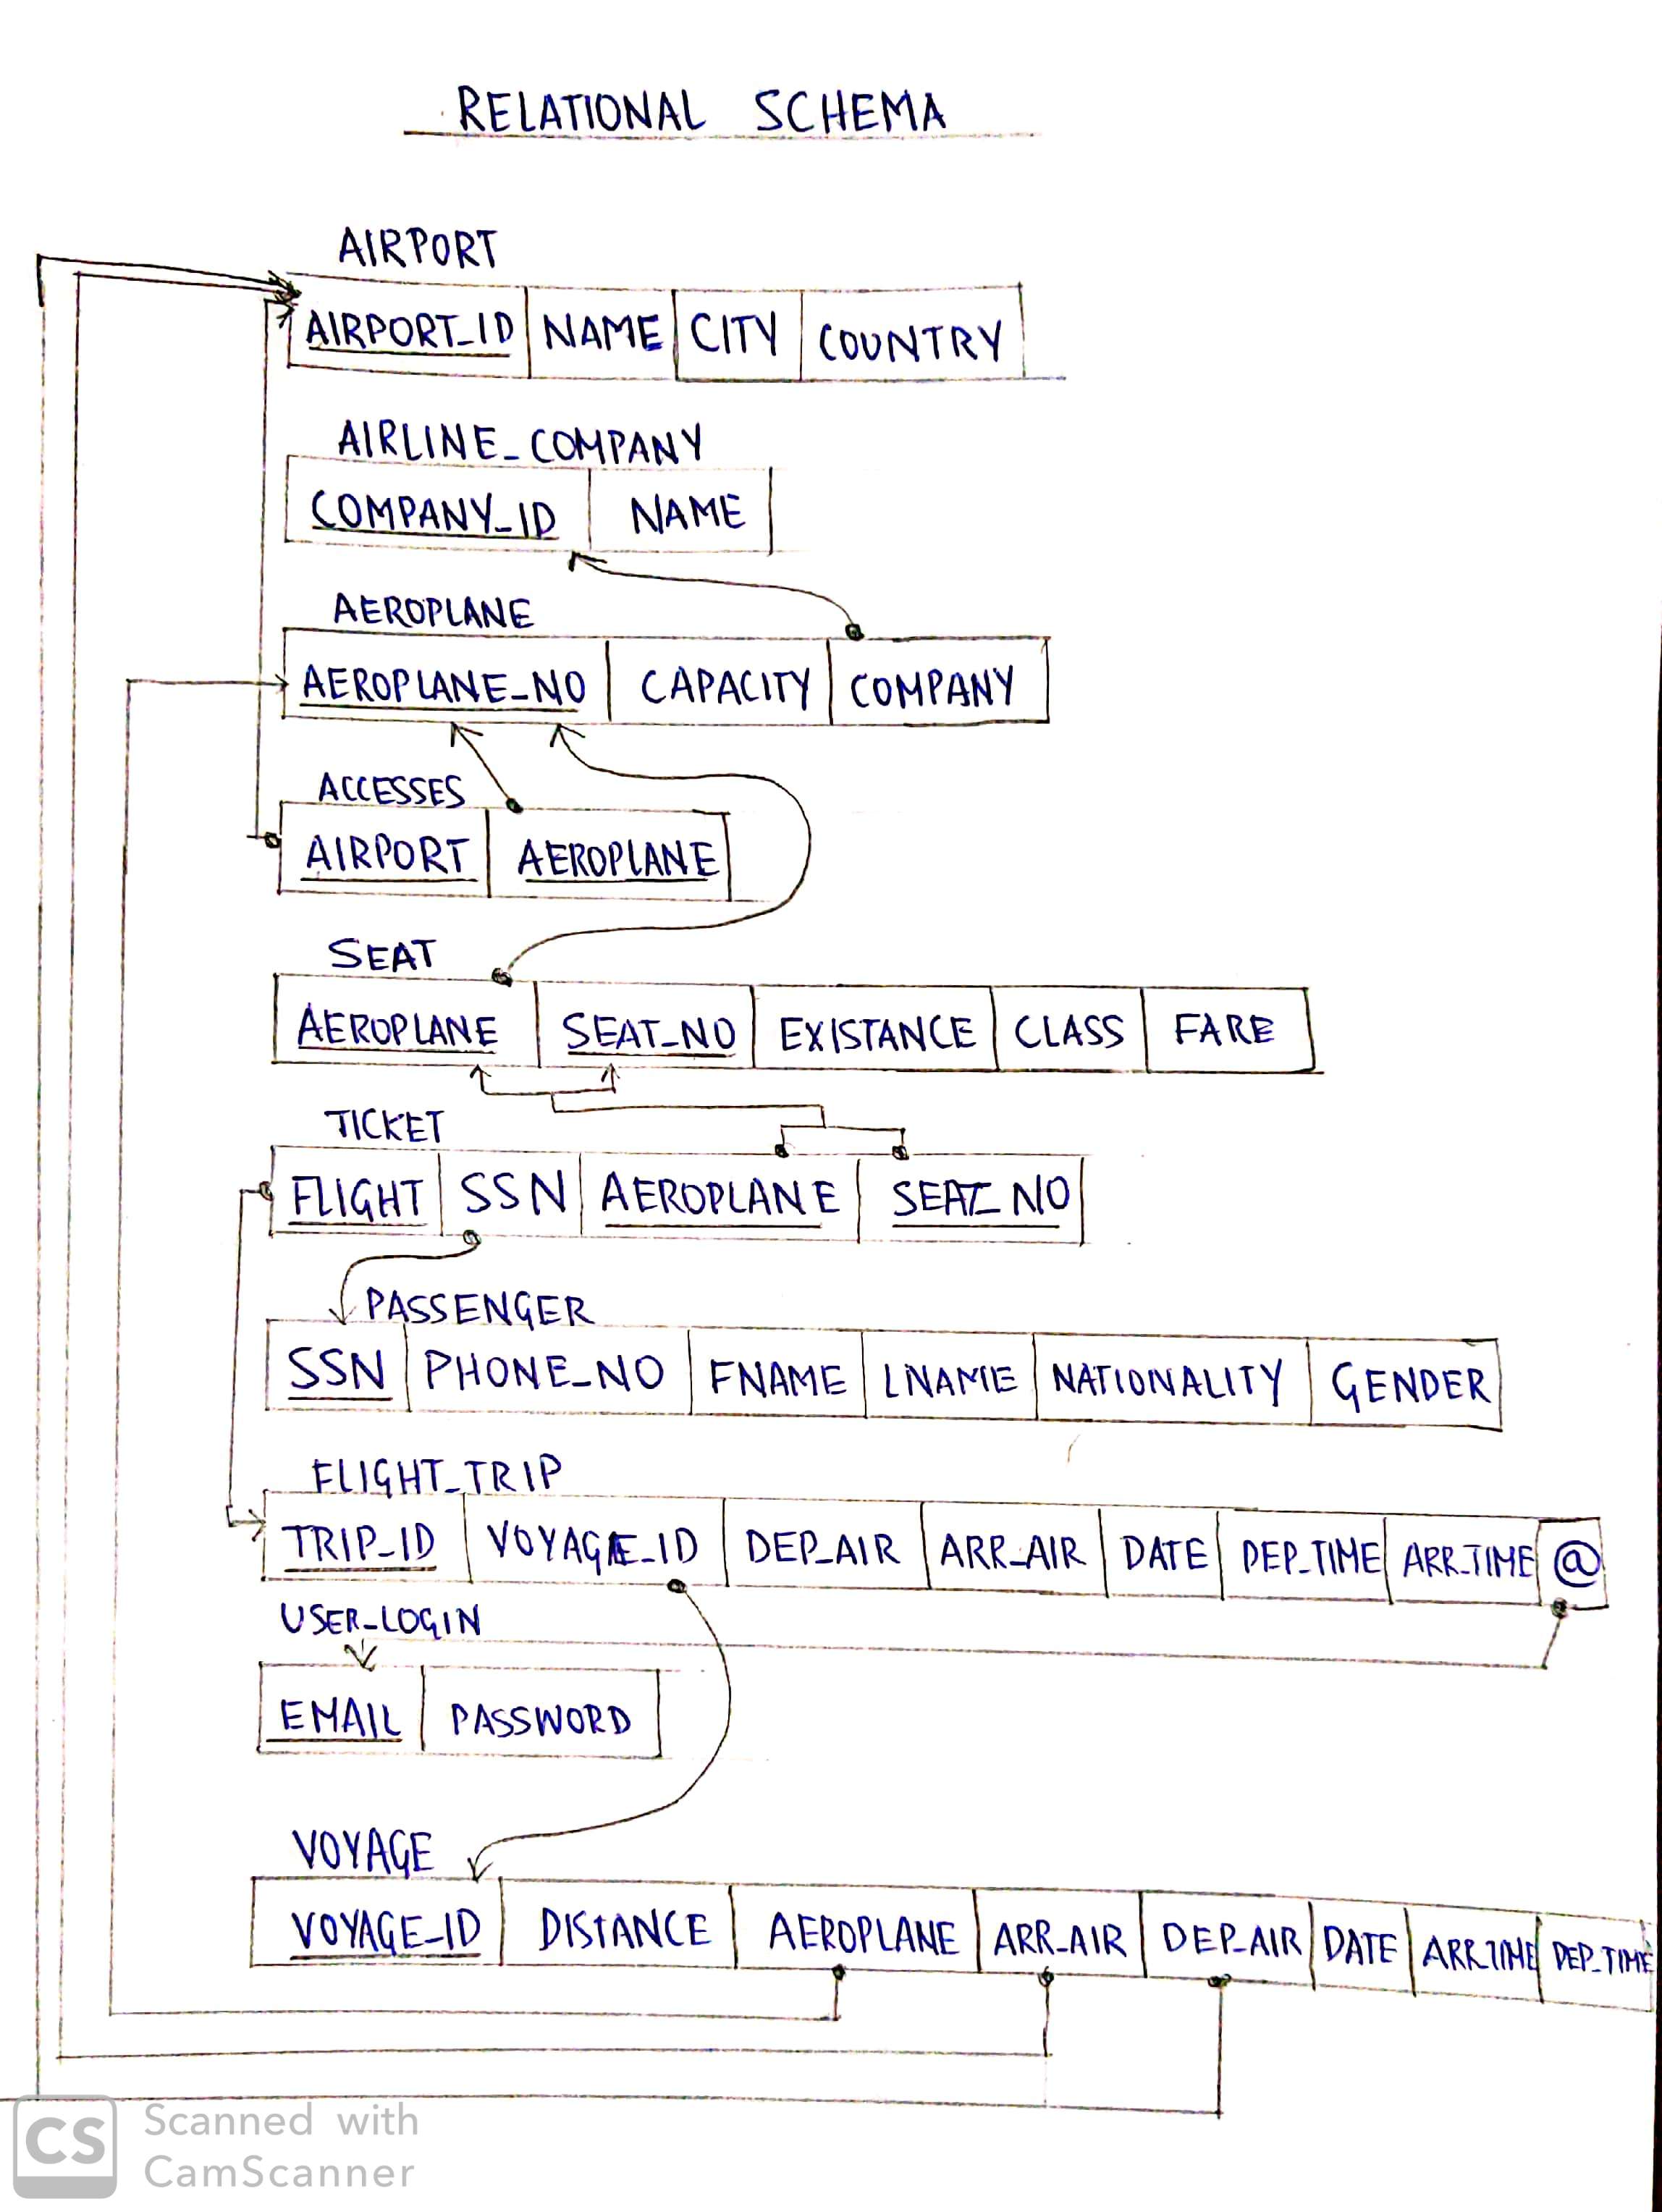 RELATIONAL SCHEMA
AIRPORT
AIRPORT_ID NAME CITY COUNTRY
AIRLINE_COMPANY
COMPANY_ID NAME
AEROPLANE
AEROPLANE_NO CAPACITY COMPANY
ACCESSES
AIRPORT AEROPLANE
SEAT
AEROPLANE SEAT_NO EXISTANCE CLASS FARE
TICKET
FLIGHT SSN AEROPLANE SEAT_NO
PASSENGER
SSN PHONE_NO FNAME LNAME NATIONALITY GENDER
FLIGHT_TRIP
TRIP_ID VOYAGE_ID DEP_AIR ARR_AIR DATE DEP_TIME ARR_TIME @
USER_LOGIN
EMAIL PASSWORD
VOYAGE
VOYAGE_ID DISTANCE AEROPLANE ARR_AIR DEP_AIR DATE ARR_TIME DEP_TIME
CS Scanned with
CamScanner